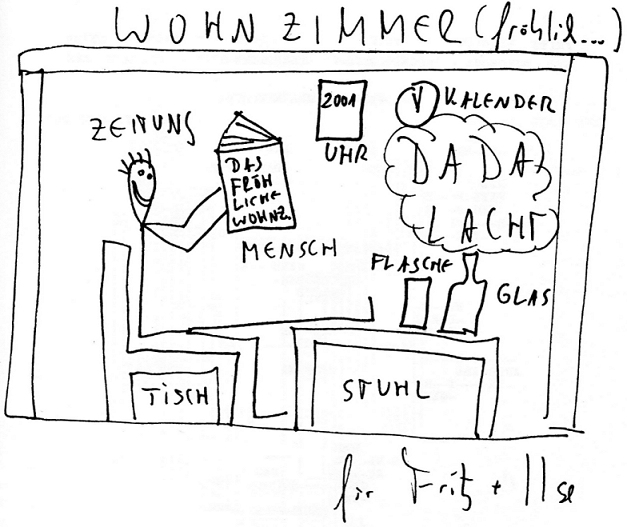 WOHNZIMMER (fröhlich...)
2001
KALENDER
ZEITUNG
UHR
DAS
FRÖH
LICHE
WOHNZ.
DADA
LACHT
MENSCH
FLASCHE
GLAS
TISCH
STUHL
für Fritz + Ilse